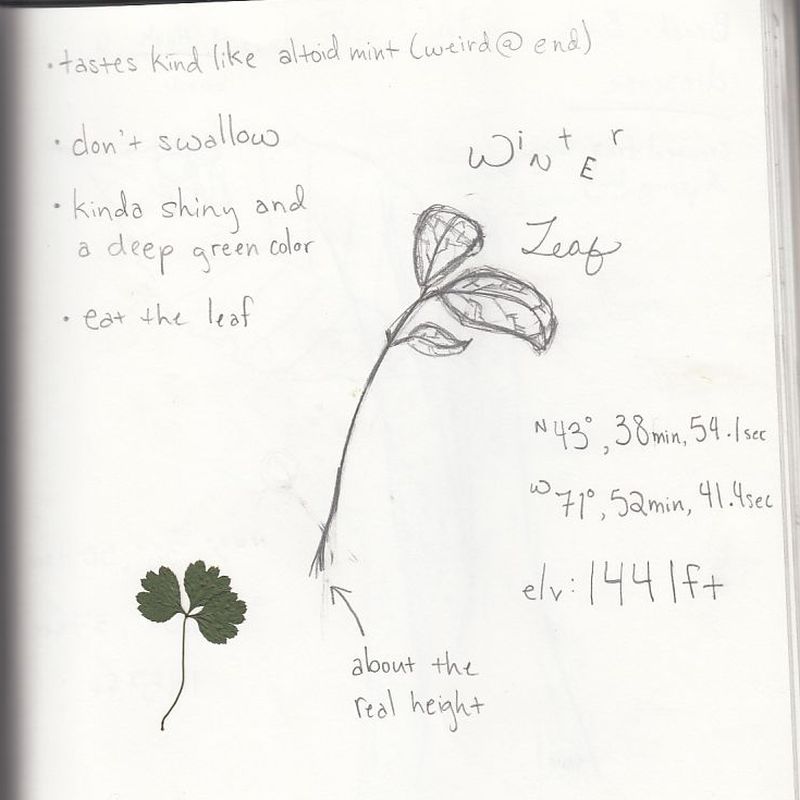 • tastes kind like altoid mint (weird @ end)
• don't swallow
• kinda shiny and
a deep green color
• eat the leaf
WiNtEr
Leaf
N 43°, 38min, 54.1sec
W 71°, 52min, 41.4sec
elv: 1441ft
about the
real height